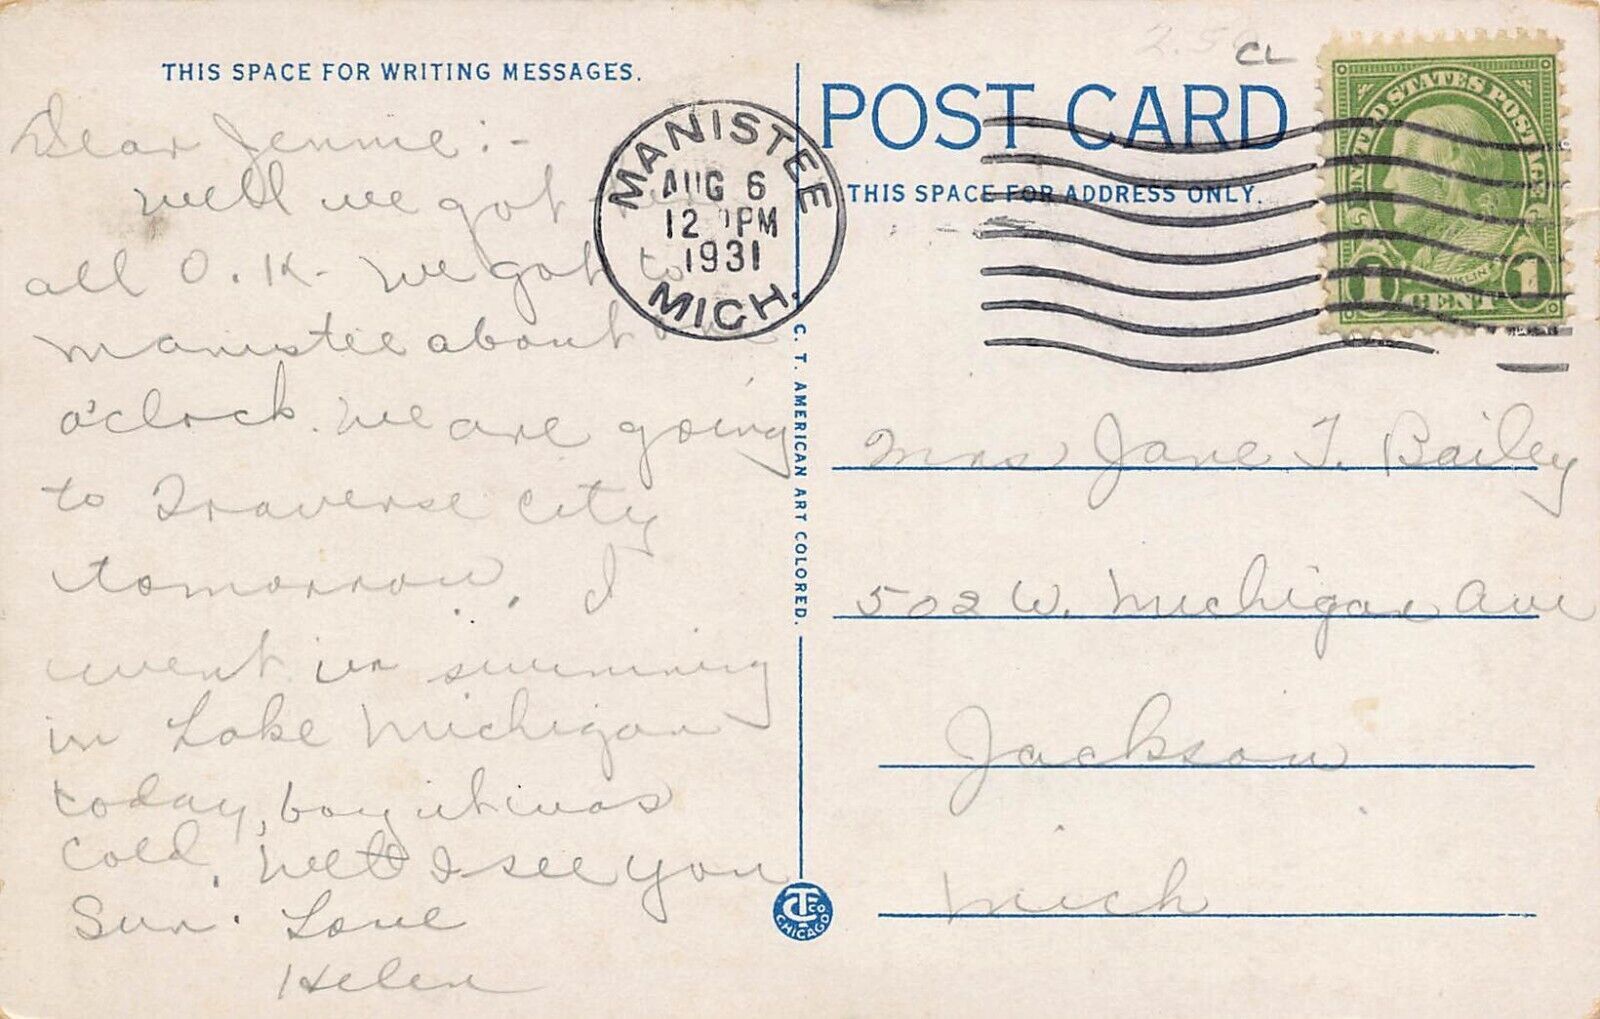 THIS SPACE FOR WRITING MESSAGES.
Dear Jennie:-
Well we got
all O.K. We got to
Manistee about
o'clock. We are going
to Traverse City
tomorrow. I
went in swimming
in Lake Michigan
today, boy it was
cold. Well I see you
Sun. Love
Helen
MANISTEE
AUG 6
12 PM
1931
MICH.
C. T. AMERICAN ART COLORED.
CT CO
CHICAGO
2.50
CL
POST CARD
THIS SPACE FOR ADDRESS ONLY.
UNITED STATES POSTAGE
1 CENT 1
Mrs Jane T. Bailey
502 W. Michigan Ave
Jackson
Mich